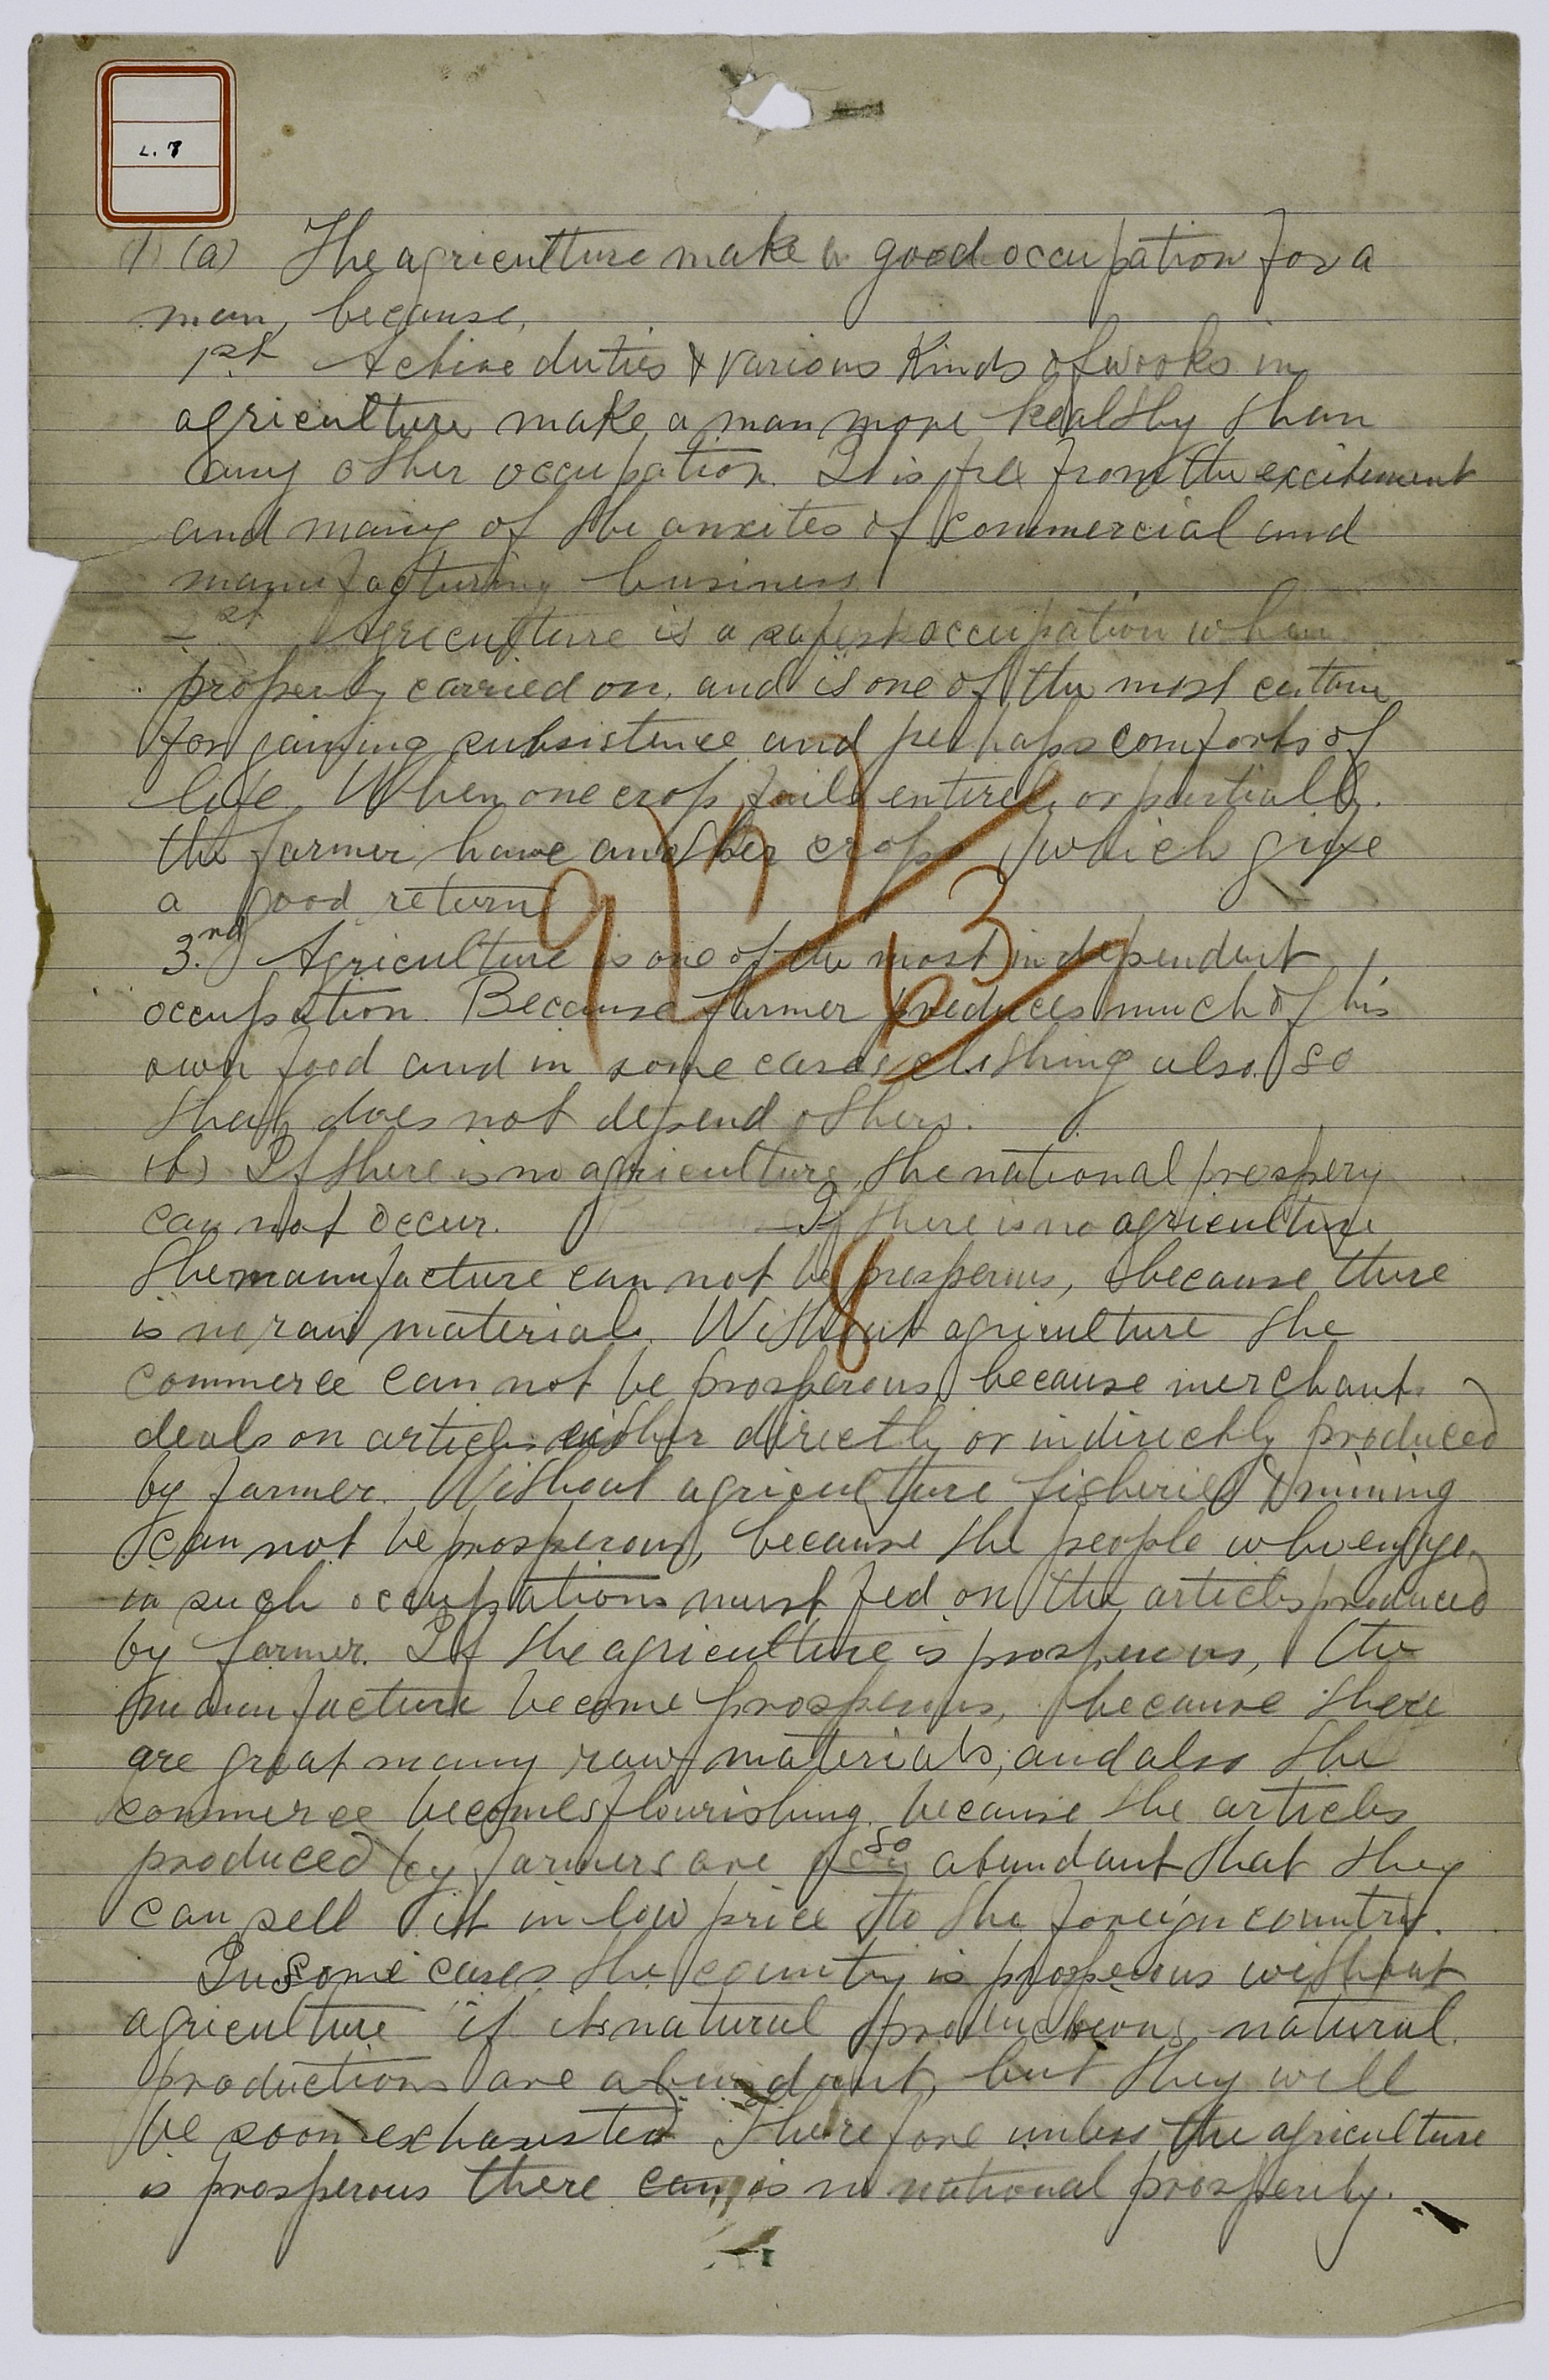 L. 7
1) (a) The agriculture make a good occupation for a
man, because,
1st Active duties & various Kinds of works in
agriculture make a man more healthy than
any other occupation. It is free from the excitement
and many of the anxites of commercial and
manufacturing business.
2st Agriculture is a safest occupation when
properly carried on, and is one of the most certain
for gaining subsistence and perhaps comforts of
life. When one crop fails entirely or partially.
the farmer have another crops which give
a good return
3.rd Agriculture is one of the most independent
occupation. Because farmer produces much of his
own food and in some cases clothing also. So
that does not depend others.
(b) If there is no agriculture, the national prospery
can not occur. If there is no agriculture
the manufacture can not be prosperous, because there
is no raw material. Without agriculture the
commerce can not be prosperous because merchant
deals on articles either directly or indirectly produced
by farmer. Without agriculture fisheries & mining
can not be prosperous, because the people who engage
in such occupations must fed on the articles produced
by farmer. If the agriculture is prosperous, the
manufacture become prosperous, because there
are great many raw materials; and also the
commerce becomes flourishing because the articles
produced by farmers are so abundant that they
can sell it in low price to the foreign country.
In some cases the country is prosperous without
agriculture if its natural productions natural
productions are abundant, but they will
be soon exhausted Therefore unless the agriculture
is prosperous there can is no national prosperity.
9
63
8